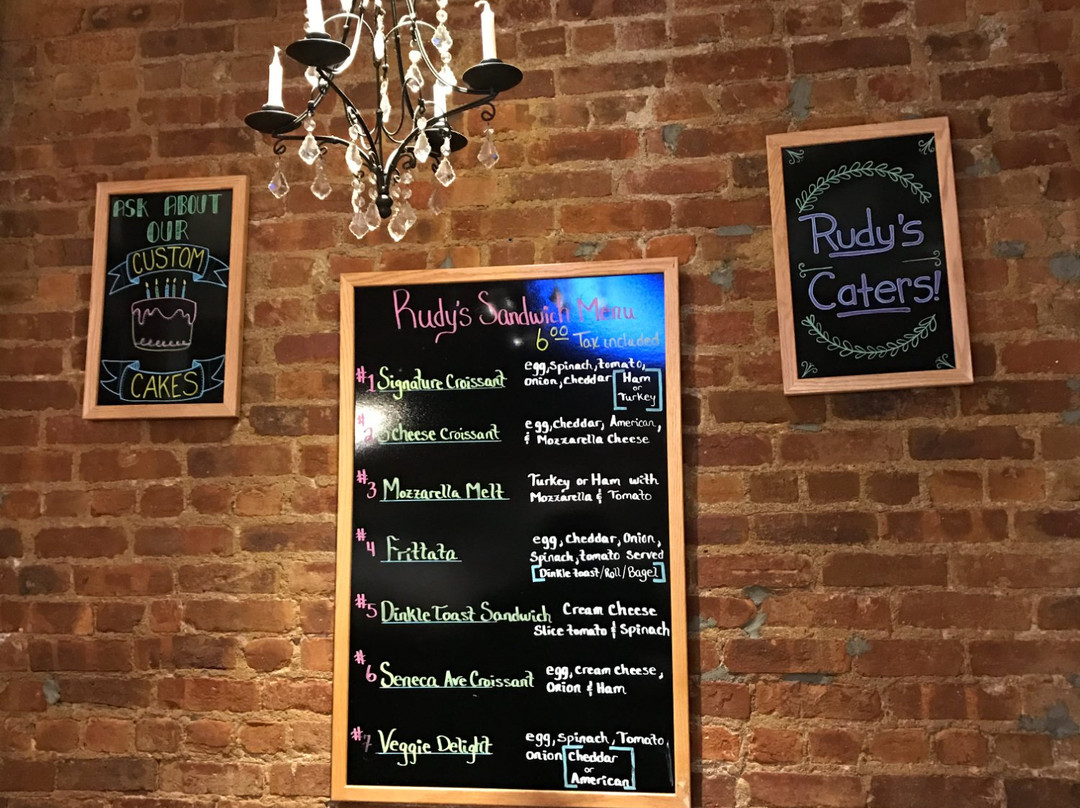 ASK ABOUT
OUR
CUSTOM
CAKES
Rudy's Sandwich Menu
6⁰⁰ Tax included
#1 Signature Croissant egg, spinach, tomato,
onion, cheddar Ham
or
Turkey
#2 3 Cheese Croissant egg, cheddar, American,
& Mozzarella Cheese
#3 Mozzarella Melt Turkey or Ham with
Mozzarella & Tomato
#4 Frittata egg, cheddar, Onion,
Spinach, tomato served
Dinkle toast/Roll/Bagel
#5 Dinkle Toast Sandwich Cream Cheese
Slice tomato & Spinach
#6 Seneca Ave Croissant egg, cream cheese,
Onion & Ham
#7 Veggie Delight egg, Spinach, Tomato,
onion Cheddar
or
American
Rudy's
Caters!